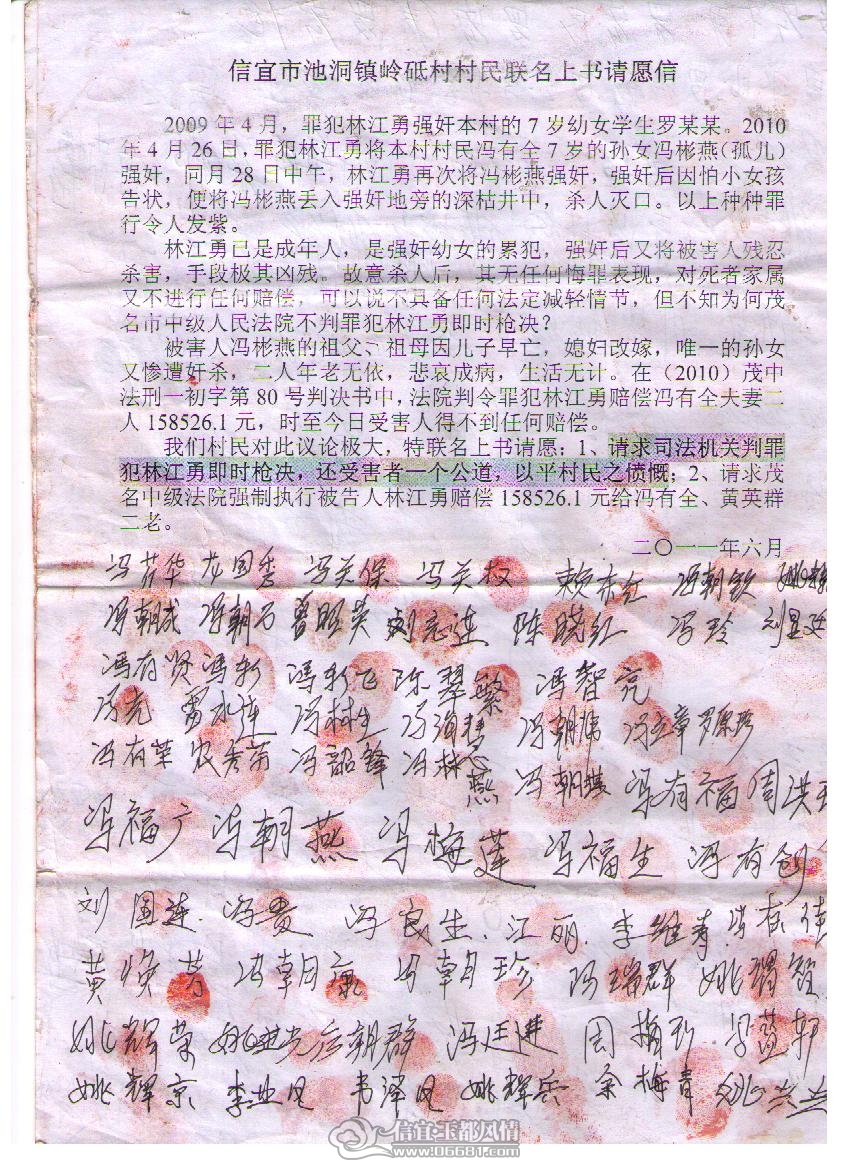 信宜市池洞镇岭砥村村民联名上书请愿信
2009年4月，罪犯林江勇强奸本村的7岁幼女学生罗某某。2010
年4月26日，罪犯林江勇将本村村民冯有全7岁的孙女冯彬燕（孤儿）
强奸，同月28日中午，林江勇再次将冯彬燕强奸，强奸后因怕小女孩
告状，便将冯彬燕丢入强奸地旁的深枯井中，杀人灭口。以上种种罪
行令人发紫。
林江勇已是成年人，是强奸幼女的累犯，强奸后又将被害人残忍
杀害，手段极其凶残。故意杀人后，其无任何悔罪表现，对死者家属
又不进行任何赔偿，可以说不具备任何法定减轻情节，但不知为何茂
名市中级人民法院不判罪犯林江勇即时枪决？
被害人冯彬燕的祖父、祖母因儿子早亡，媳妇改嫁，唯一的孙女
又惨遭奸杀，二人年老无依，悲哀成病，生活无计。在（2010）茂中
法刑一初字第80号判决书中，法院判令罪犯林江勇赔偿冯有全夫妻二
人158526.1元，时至今日受害人得不到任何赔偿。
我们村民对此议论极大，特联名上书请愿：1、请求司法机关判罪
犯林江勇即时枪决，还受害者一个公道，以平村民之愤慨；2、请求茂
名中级法院强制执行被告人林江勇赔偿158526.1元给冯有全、黄英群
二老。
二〇一一年六月
冯芳华 龙国秀 冯关保 冯关权 冯朝钦
冯朝成 冯朝石 曾昭英 刘志连 陈晓红 冯玲
冯有贤 冯新 冯新飞 陈翠繁 冯智亮
冯光 雷水连 冯林生 冯海慧 冯朝伟 罗原珍
冯有荣 冯韶锋 冯林燕 冯朝骐 冯有福
冯福广 冯朝燕 冯梅莲 冯福生 冯有创
刘国连 冯贵 冯良生 江丽 李维寿
黄焕芳 冯朝康 冯朝珍 冯瑞群
姚辉荣 姚进光 冯朝群 冯廷进
姚辉京 李业凤 韦泽凤 姚辉兵 余梅青
信宜·玉都风情
www.06681.com